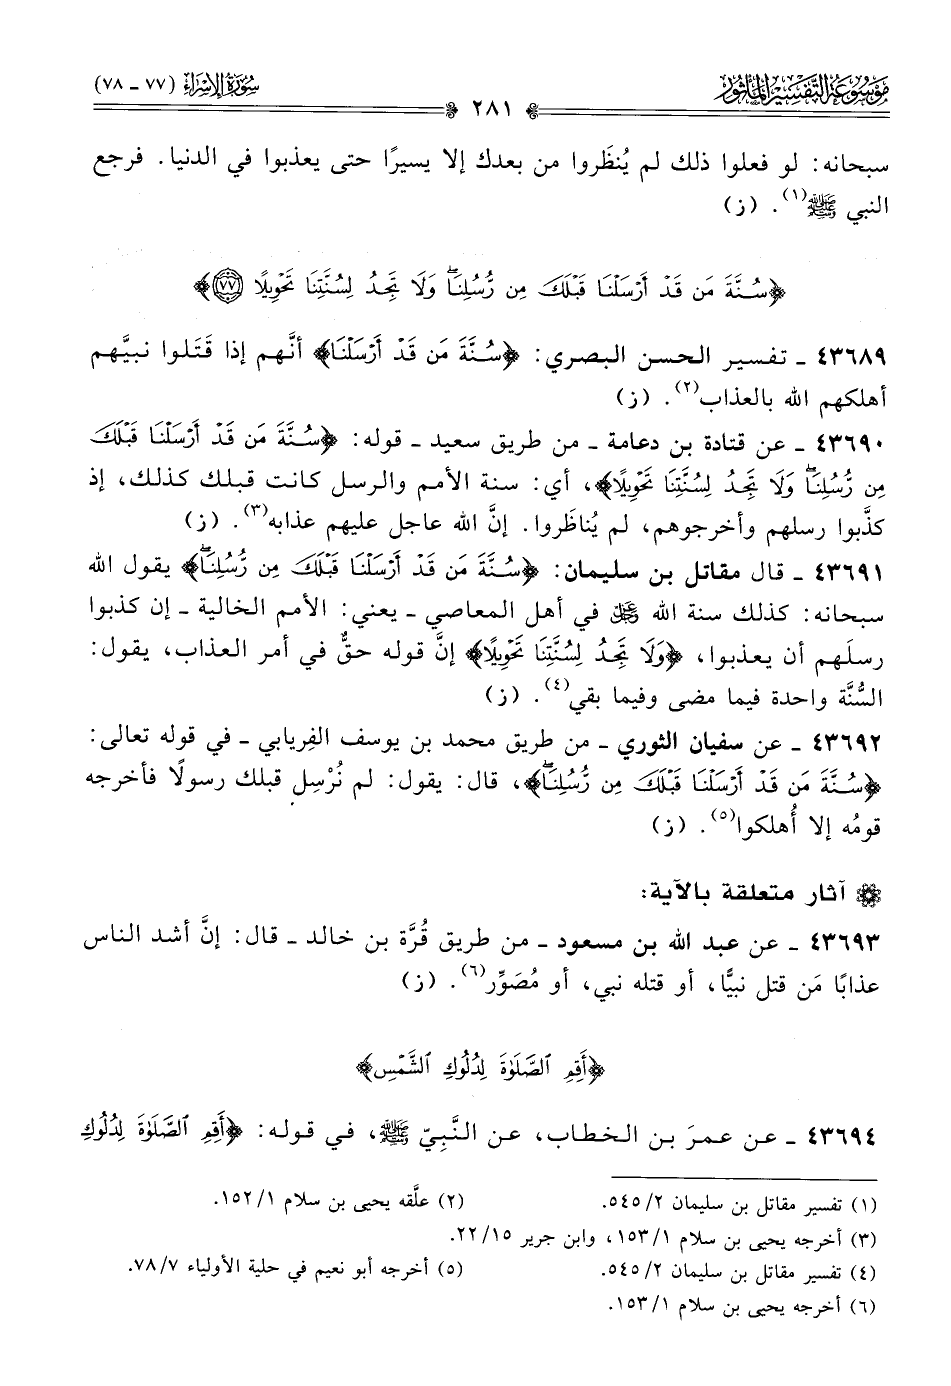 مَوْسُوعَةُ التَّفْسِيرِ المَأْثُورِ
سُورَةُ الإِسْرَاءِ (٧٧ - ٧٨)
٢٨١
سبحانه: لو فعلوا ذلك لم يُنظَروا من بعدك إلا يسيرًا حتى يعذبوا في الدنيا. فرجع
النبي ﷺ(١). (ز)
﴿سُنَّةَ مَن قَدْ أَرْسَلْنَا قَبْلَكَ مِن رُّسُلِنَاۖ وَلَا تَجِدُ لِسُنَّتِنَا تَحْوِيلًا ٧٧﴾
٤٣٦٨٩ - تفسير الحسن البصري: ﴿سُنَّةَ مَن قَدْ أَرْسَلْنَا﴾ أنَّهم إذا قَتَلوا نبيَّهم
أهلكهم الله بالعذاب(٢). (ز)
٤٣٦٩٠ - عن قتادة بن دعامة - من طريق سعيد - قوله: ﴿سُنَّةَ مَن قَدْ أَرْسَلْنَا قَبْلَكَ
مِن رُّسُلِنَاۖ وَلَا تَجِدُ لِسُنَّتِنَا تَحْوِيلًا﴾، أي: سنة الأمم والرسل كانت قبلك كذلك، إذ
كذَّبوا رسلهم وأخرجوهم، لم يُناظَروا. إنَّ الله عاجل عليهم عذابه(٣). (ز)
٤٣٦٩١ - قال مقاتل بن سليمان: ﴿سُنَّةَ مَن قَدْ أَرْسَلْنَا قَبْلَكَ مِن رُّسُلِنَاۖ﴾ يقول الله
سبحانه: كذلك سنة الله ﷻ في أهل المعاصي - يعني: الأمم الخالية - إن كذبوا
رسلَهم أن يعذبوا، ﴿وَلَا تَجِدُ لِسُنَّتِنَا تَحْوِيلًا﴾ إنَّ قوله حقٌّ في أمر العذاب، يقول:
السُّنَّة واحدة فيما مضى وفيما بقي(٤). (ز)
٤٣٦٩٢ - عن سفيان الثوري - من طريق محمد بن يوسف الفِريابي - في قوله تعالى:
﴿سُنَّةَ مَن قَدْ أَرْسَلْنَا قَبْلَكَ مِن رُّسُلِنَاۖ﴾، قال: يقول: لم نُرْسِل قبلك رسولًا فأخرجه
قومُه إلا أُهلكوا(٥). (ز)
آثار متعلقة بالآية:
٤٣٦٩٣ - عن عبد الله بن مسعود - من طريق قُرَّة بن خالد - قال: إنَّ أشد الناس
عذابًا مَن قتل نبيًّا، أو قتله نبي، أو مُصَوِّر(٦). (ز)
﴿أَقِمِ ٱلصَّلَوٰةَ لِدُلُوكِ ٱلشَّمْسِ﴾
٤٣٦٩٤ - عن عمرَ بن الخطاب، عن النَّبِيّ ﷺ، في قوله: ﴿أَقِمِ ٱلصَّلَوٰةَ لِدُلُوكِ
(١) تفسير مقاتل بن سليمان ٢/ ٥٤٥.
(٢) علَّقه يحيى بن سلام ١/ ١٥٢.
(٣) أخرجه يحيى بن سلام ١/ ١٥٣، وابن جرير ١٥/ ٢٢.
(٤) تفسير مقاتل بن سليمان ٢/ ٥٤٥.
(٥) أخرجه أبو نعيم في حلية الأولياء ٧/ ٧٨.
(٦) أخرجه يحيى بن سلام ١/ ١٥٣.